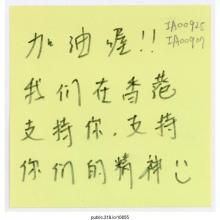 加油喔!!
IA00925
IA00907
我们在香港
支持你,支持
你们的精神
public.318.io/0895